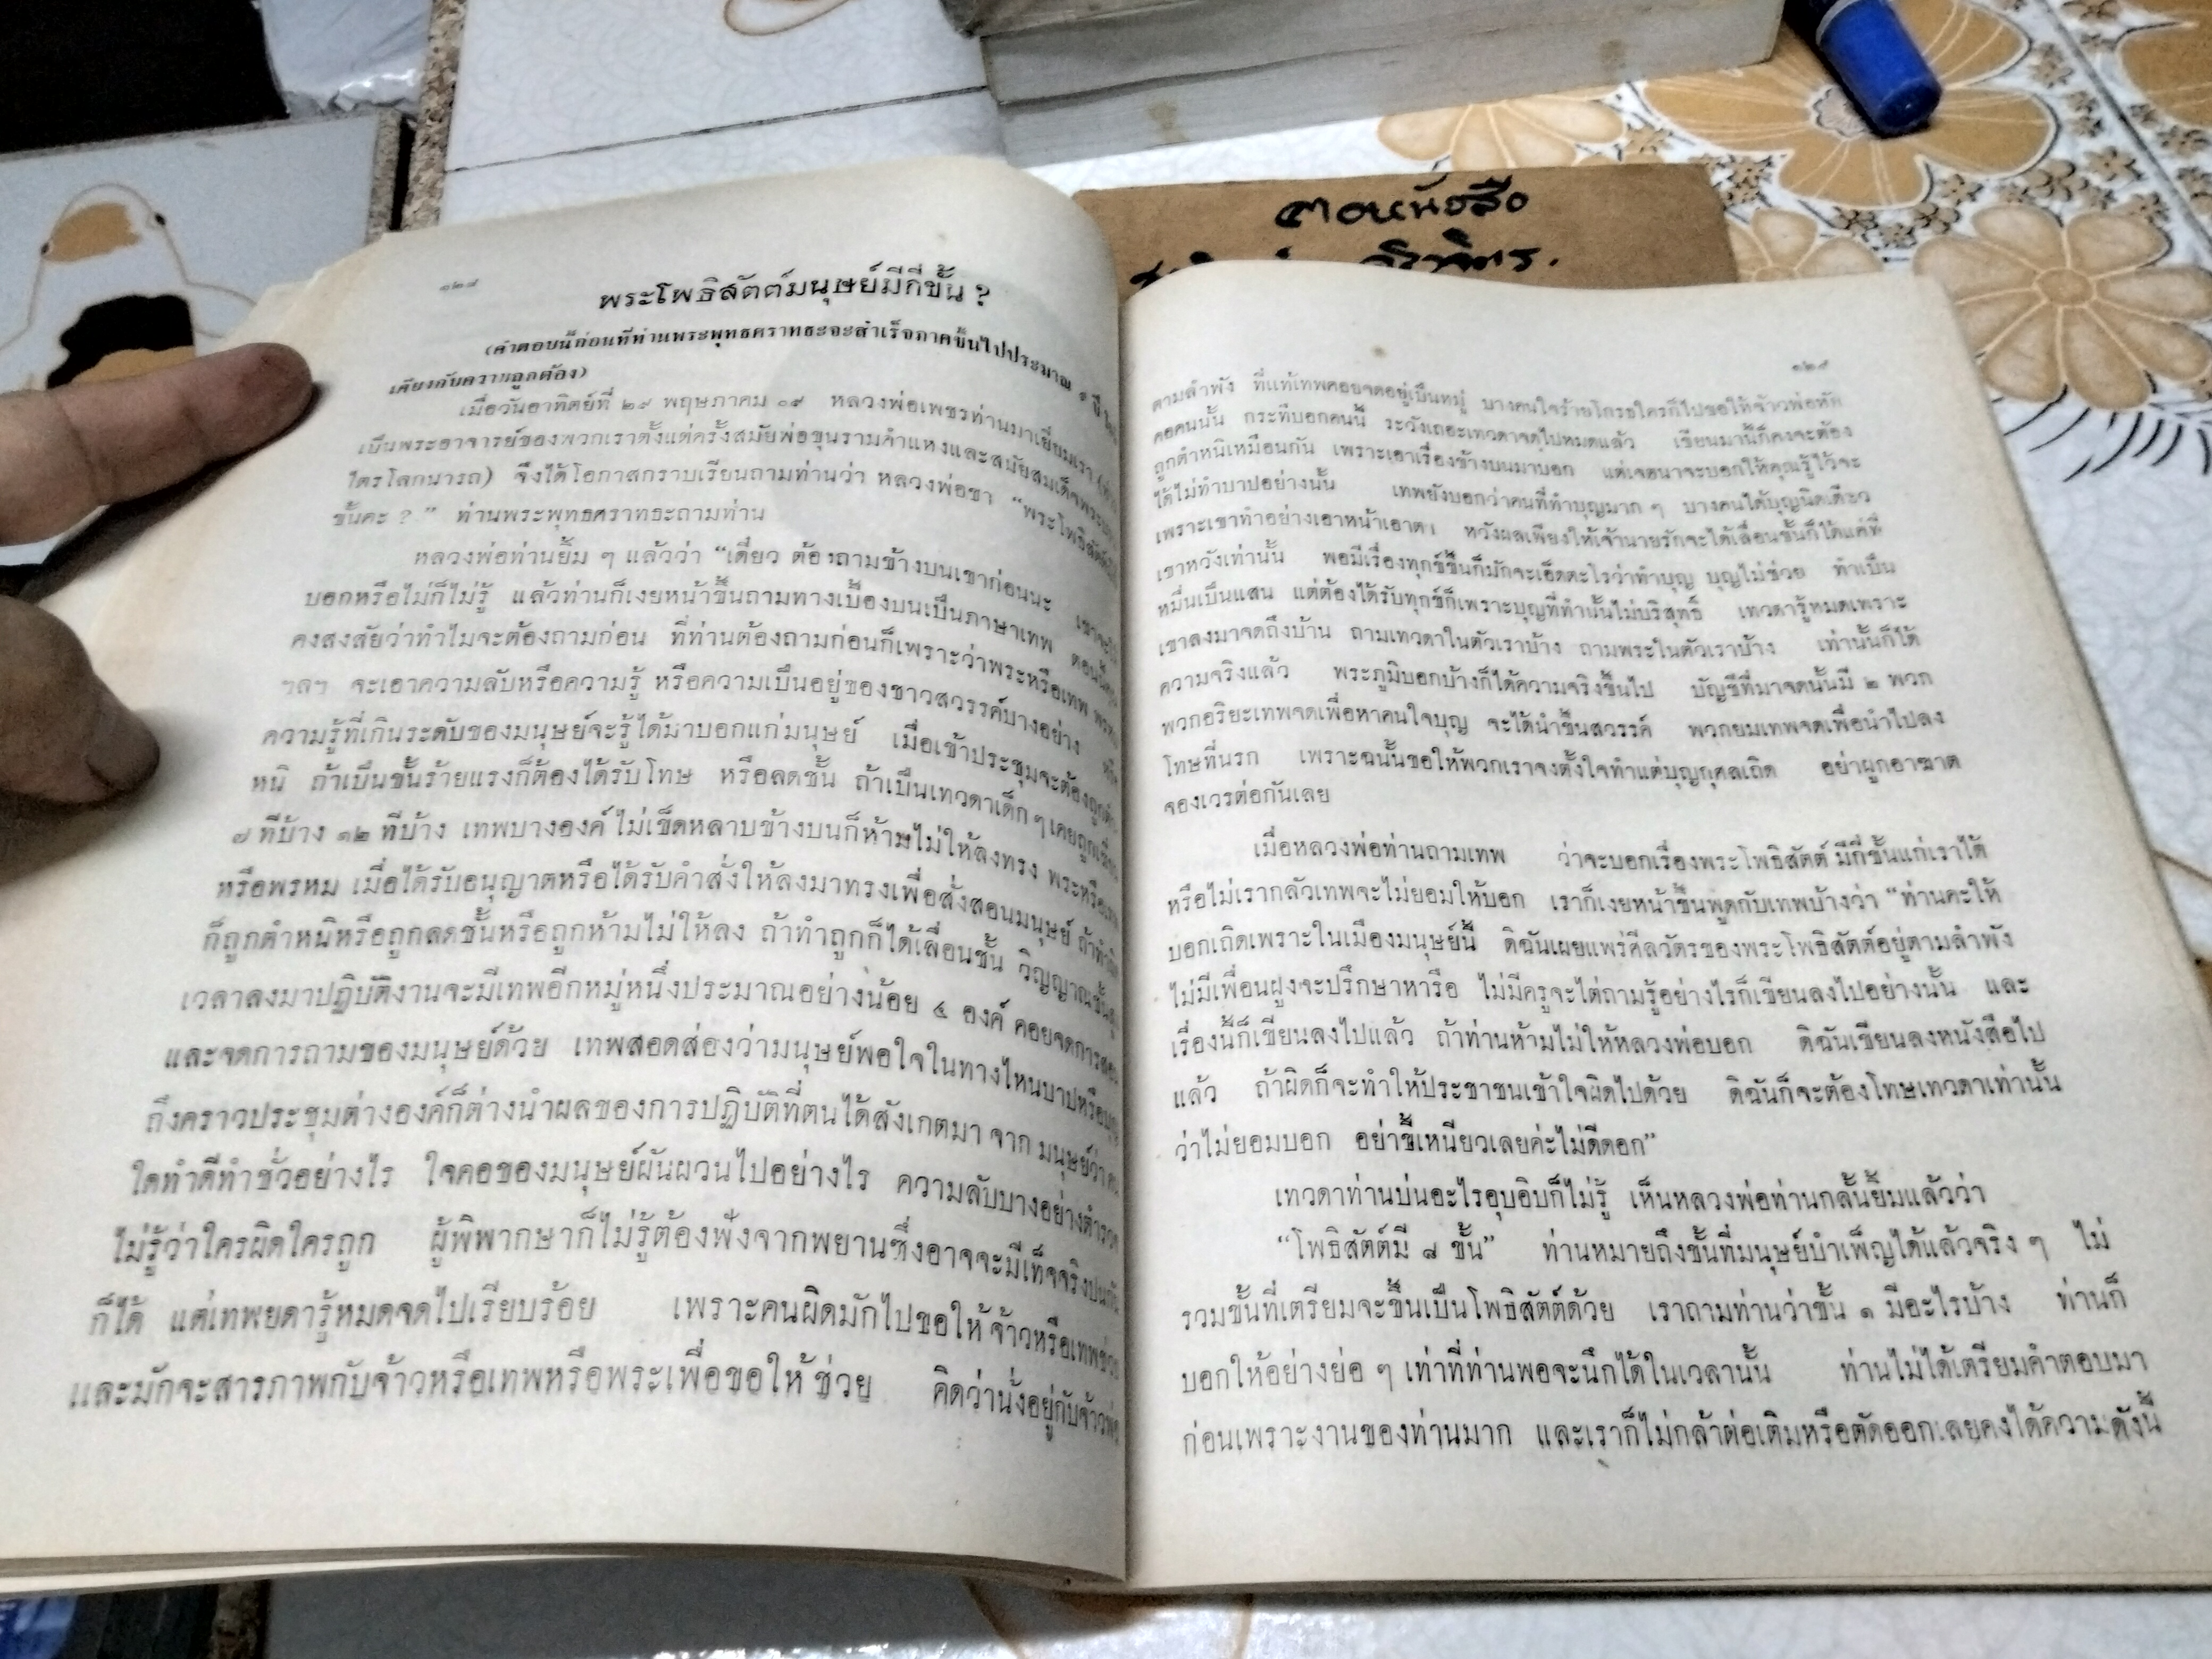 ๑๒๘
พระโพธิสัตต์มนุษย์มีกี่ขั้น ?
(คำตอบนี้ก่อนที่ท่านพระพุทธคราทธะจะสำเร็จภาคขึ้นไปประมาณ ๑ ปี
เคียงกับความถูกต้อง)
เมื่อวันอาทิตย์ที่ ๒๙ พฤษภาคม ๐๙ หลวงพ่อเพชรท่านมาเยี่ยมเรา
เป็นพระอาจารย์ของพวกเราตั้งแต่ครั้งสมัยพ่อขุนรามคำแหงและสมัยสมเด็จพระบรม
ไตรโลกนารถ) จึงได้โอกาสกราบเรียนถามท่านว่า หลวงพ่อขา “พระโพธิสัตต์
ขั้นคะ ?” ท่านพระพุทธคราทธะถามท่าน
หลวงพ่อท่านยิ้ม ๆ แล้วว่า “เดี๋ยว ต้องถามข้างบนเขาก่อนนะ
บอกหรือไม่ก็ไม่รู้ แล้วท่านก็เงยหน้าขึ้นถามทางเบื้องบนเป็นภาษาเทพ
คงสงสัยว่าทำไมจะต้องถามก่อน ที่ท่านต้องถามก่อนก็เพราะว่าพระหรือเทพ
ฯลฯ จะเอาความลับหรือความรู้ หรือความเป็นอยู่ของชาวสวรรค์บางอย่าง
ความรู้ที่เกินระดับของมนุษย์จะรู้ได้มาบอกแก่มนุษย์ เมื่อเข้าประชุมจะต้อง
หนิ ถ้าเป็นขั้นร้ายแรงก็ต้องได้รับโทษ หรือลดชั้น ถ้าเป็นเทวดาเด็ก ๆ เคยถูกเฆี่ยน
๗ ทีบ้าง ๑๒ ทีบ้าง เทพบางองค์ไม่เข็ดหลาบข้างบนก็ห้ามไม่ให้ลงทรง พระหรือเทพ
หรือพรหม เมื่อได้รับอนุญาตหรือได้รับคำสั่งให้ลงมาทรงเพื่อสั่งสอนมนุษย์ ถ้าทำผิด
ก็ถูกตำหนิหรือถูกลดชั้นหรือถูกห้ามไม่ให้ลง ถ้าทำถูกก็ได้เลื่อนชั้น วิญญาณชั้นสูง
เวลาลงมาปฏิบัติงานจะมีเทพอีกหมู่หนึ่งประมาณอย่างน้อย ๔ องค์ คอยจดการสอน
และจดการถามของมนุษย์ด้วย เทพสอดส่องว่ามนุษย์พอใจในทางไหนบาปหรือบุญ
ถึงคราวประชุมต่างองค์ก็ต่างนำผลของการปฏิบัติที่ตนได้สังเกตมา จาก มนุษย์ว่า
ใดทำดีทำชั่วอย่างไร ใจคอของมนุษย์ผันผวนไปอย่างไร ความลับบางอย่างตำรวจ
ไม่รู้ว่าใครผิดใครถูก ผู้พิพากษาก็ไม่รู้ต้องฟังจากพยานซึ่งอาจจะมีเท็จจริงปนกัน
ก็ได้ แต่เทพยดารู้หมดจดไปเรียบร้อย เพราะคนผิดมักไปขอให้ จ้าวหรือเทพช่วย
และมักจะสารภาพกับจ้าวหรือเทพหรือพระเพื่อขอให้ ช่วย คิดว่านั่งอยู่กับจ้าวพ่อ
ตอหนังสือ
๑๒๙
ตามลำพัง ที่แท้เทพคอยจดอยู่เป็นหมู่ บางคนใจร้ายโกรธใครก็ไปขอให้จ้าวพ่อหัก
คอคนนั้น กระทืบอกคนนี้ ระวังเถอะเทวดาจดไปหมดแล้ว เขียนมานี้ก็คงจะต้อง
ถูกตำหนิเหมือนกัน เพราะเอาเรื่องข้างบนมาบอก แต่เจตนาจะบอกให้คุณรู้ไว้จะ
ได้ไม่ทำบาปอย่างนั้น เทพยังบอกว่าคนที่ทำบุญมาก ๆ บางคนได้บุญนิดเดียว
เพราะเขาทำอย่างเอาหน้าเอาตา หวังผลเพียงให้เจ้านายรักจะได้เลื่อนขั้นก็ได้แค่ที่
เขาหวังเท่านั้น พอมีเรื่องทุกข์ขึ้นก็มักจะเอ็ดตะโรว่าทำบุญ บุญไม่ช่วย ทำเป็น
หมื่นเป็นแสน แต่ต้องได้รับทุกข์ก็เพราะบุญที่ทำนั้นไม่บริสุทธิ์ เทวดารู้หมดเพราะ
เขาลงมาจดถึงบ้าน ถามเทวดาในตัวเราบ้าง ถามพระในตัวเราบ้าง เท่านั้นก็ได้
ความจริงแล้ว พระภูมิบอกบ้างก็ได้ความจริงขึ้นไป บัญชีที่มาจดนั้นมี ๒ พวก
พวกอริยะเทพจดเพื่อหาคนใจบุญ จะได้นำขึ้นสวรรค์ พวกยมเทพจดเพื่อนำไปลง
โทษที่นรก เพราะฉนั้นขอให้พวกเราจงตั้งใจทำแต่บุญกุศลเถิด อย่าผูกอาฆาต
จองเวรต่อกันเลย
เมื่อหลวงพ่อท่านถามเทพ ว่าจะบอกเรื่องพระโพธิสัตต์ มีกี่ขั้นแก่เราได้
หรือไม่เรากลัวเทพจะไม่ยอมให้บอก เราก็เงยหน้าขึ้นพูดกับเทพบ้างว่า “ท่านคะให้
บอกเถิดเพราะในเมืองมนุษย์นี้ ดิฉันเผยแพร่ศีลวัตรของพระโพธิสัตต์อยู่ตามลำพัง
ไม่มีเพื่อนฝูงจะปรึกษาหารือ ไม่มีครูจะไต่ถามรู้อย่างไรก็เขียนลงไปอย่างนั้น และ
เรื่องนี้ก็เขียนลงไปแล้ว ถ้าท่านห้ามไม่ให้หลวงพ่อบอก ดิฉันเขียนลงหนังสือไป
แล้ว ถ้าผิดก็จะทำให้ประชาชนเข้าใจผิดไปด้วย ดิฉันก็จะต้องโทษเทวดาเท่านั้น
ว่าไม่ยอมบอก อย่าขี้เหนียวเลยค่ะไม่ดีดอก”
เทวดาท่านบ่นอะไรอุบอิบก็ไม่รู้ เห็นหลวงพ่อท่านกลั้นยิ้มแล้วว่า
“โพธิสัตต์มี ๘ ขั้น” ท่านหมายถึงขั้นที่มนุษย์บำเพ็ญได้แล้วจริง ๆ ไม่
รวมขั้นที่เตรียมจะขึ้นเป็นโพธิสัตต์ด้วย เราถามท่านว่าขั้น ๑ มีอะไรบ้าง ท่านก็
บอกให้อย่างย่อ ๆ เท่าที่ท่านพอจะนึกได้ในเวลานั้น ท่านไม่ได้เตรียมคำตอบมา
ก่อนเพราะงานของท่านมาก และเราก็ไม่กล้าต่อเติมหรือตัดออกเลยคงได้ความดังนี้